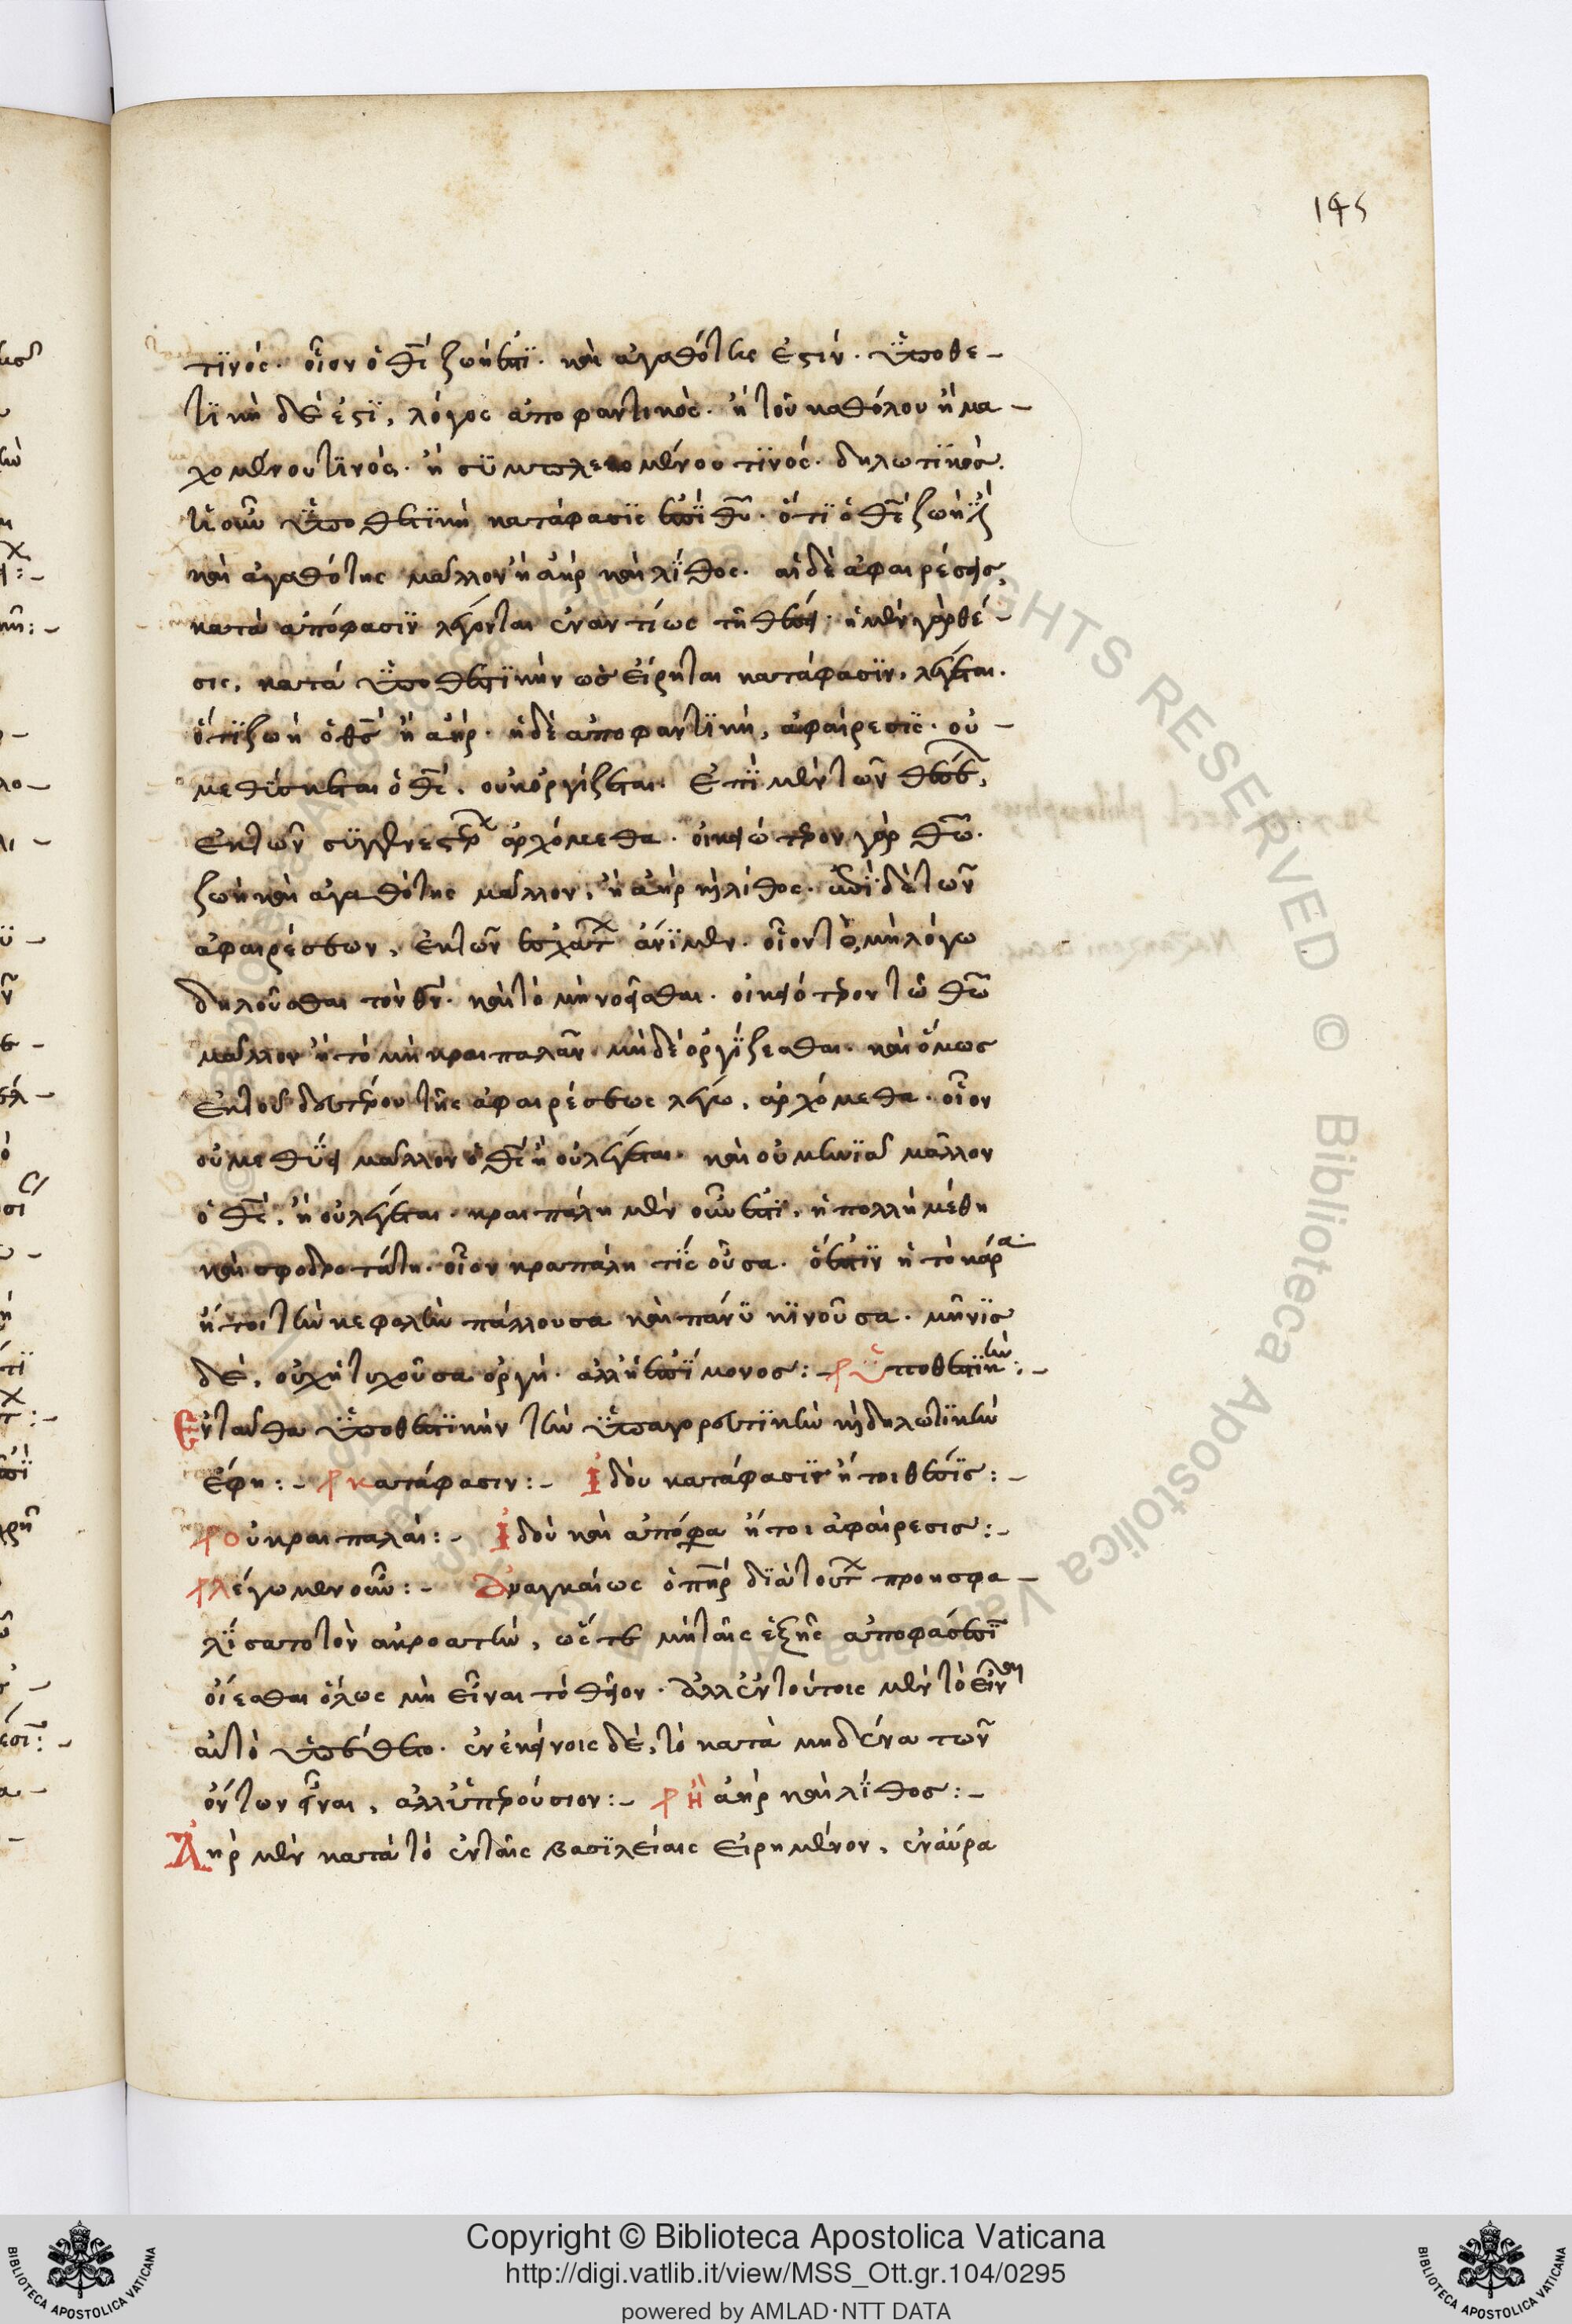 145
τϊνός. οἷον ὁ θ̅ς̅ ζωή ἐστϊ. καὶ ἀγαθότης ἐστίν. ὑποθε-
τϊκὴ δέ ἐστϊ, λόγος ἀποφαντικὸς. ἢ τοῦ καθόλου ἢ μα-
χομένου τϊνὸς. ἢ σϋμπλεκομένου τϊνός. δηλωτϊκὸς.
οὖν ὑποθετϊκὴ κατάφασϊς ἐπὶ θ̅υ̅. ὅτϊ ὁ θ̅ς̅ ζωὴ
καὶ ἀγαθότης μᾶλλον ἢ ἀὴρ καὶ λΐθος. αἱ δὲ ἀφαιρέσεις,
κατὰ ἀπόφασϊν λέγονται ἐναντίως τῇ θέσει. ἡ μὲν γὰρ θέ-
σις, κατὰ ὑποθετϊκὴν ὡς εἴρηται κατάφασϊν, λέγεται.
ὅτϊ ζωὴ ὁ θ̅ς̅ ἢ ἀὴρ. ἡ δὲ ἀποφαντϊκὴ, ἀφαίρεσϊς. οὐ
μεθύσκεται ὁ θ̅ς̅. οὐκ ὀργίζεται. ἐπὶ μὲν τῶν θέσεων,
ἐκ τῶν σϋγγενεστέρων ἀρχόμεθα. οἰκειώτερον γὰρ θ̅ω̅.
ζωὴ καὶ ἀγαθότης μᾶλλον, ἢ ἀὴρ κ λίθος. ἐπὶ δὲ τῶν
ἀφαιρέσεων, ἐκ τῶν ἐσχάτων ἄνϊμεν. οἷον τὸ, μὴ λόγω
δηλοῦσθαι τὸν θ̅ν̅. καὶ τὸ μὴ νοεῖσθαι. οἰκειότερον τῶ θ̅ω̅
μᾶλλον ἢ τὸ μὴ κραιπαλᾶν. μὴ δὲ ὀργΐζεσθαι. καὶ ὅμως
ἐκ τοῦ δευτέρου τῆς ἀφαιρέσεως λέγω, ἀρχόμεθα. οἷον
οὐ μεθΰει μᾶλλον ὁ θ̅ς̅ ἢ οὐ λέγεται. καὶ οὐ μηνϊᾶ μᾶλλον
ὁ θ̅ς̅, ἢ οὐ λέγεται. κραιπάλη μὲν οὖν ἐστϊ, ἡ πολλὴ μέθη
καὶ σφοδροτάτη. οἷον κραπάλη τΐς οὖσα. ὅ ἐστϊν ἡ τὸ κάρα
ἤτοι τὴν κεφαλὴν πάλλουσα καὶ πάνϋ κϊνοῦσα. μῆνϊς
δὲ, οὐχ ἡ τυχοῦσα ὀργὴ. ἀλλ' ἡ ἐπΐμονος:- ὑποθετϊκὴν:-
Ἐνταῦθα ὑποθετϊκὴν τὴν ὑπαγορευτϊκὴν κ δηλωτϊκὴν
ἔφη:- κατάφασιν:- Ἰδοὺ κατάφασϊν ἤτοι θέσϊς:-
οὐ κραιπαλᾶι:- Ἰδοὺ καὶ ἀπόφα ἤτοι ἀφαίρεσις:-
λέγωμεν οὖν:- Ἀναγκαίως ὁ π̅η̅ρ̅ δϊὰ τούτων προησφα-
λΐσατο τὸν ἀκροατὴν, ὥς τε μὴ ταῖς ἑξῆς ἀποφάσεσϊ
οἴεσθαι ὅλως μὴ εἶναι τὸ θεῖον. ἀλλ' ἐν τούτοις μὲν τὸ εἶναι
αὐτὸ ὑπέθετο. ἐν ἐκείνοις δὲ, τὸ κατὰ μηδένα τῶν
ὄντων εἶναι, ἀλλ' ὑπερούσιον:- ἢ ἀὴρ καὶ λΐθος:-
Ἀὴρ μὲν κατὰ τὸ ἐν ταῖς βασϊλείαις εἰρημένον, ἐν αὔρα
ALL RIGHTS RESERVED © Biblioteca Apostolica Vaticana
Copyright © Biblioteca Apostolica Vaticana
http://digi.vatlib.it/view/MSS_Ott.gr.104/0295
powered by AMLAD·NTT DATA
BIBLIOTECA APOSTOLICA VATICANA
BIBLIOTECA APOSTOLICA VATICANA